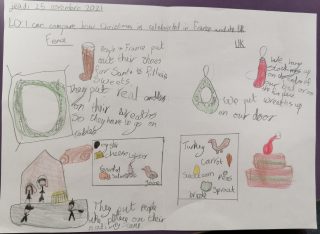 jeudi 25 novembre 2021
LO: I can compare how Christmas is celebrated in France and the UK
France
UK
People in France put
out their shoes
for Santa to fill with
sweets
We hang
stockings up
on the end of
our bed or on
the fire place
They put real candles
on their wreaths
so they have to go on
tables
We put wreaths up
on our door
cheese
Salmon
Juice
Turkey
carrot
peas
Sprout
They put people
like police on their
nativity